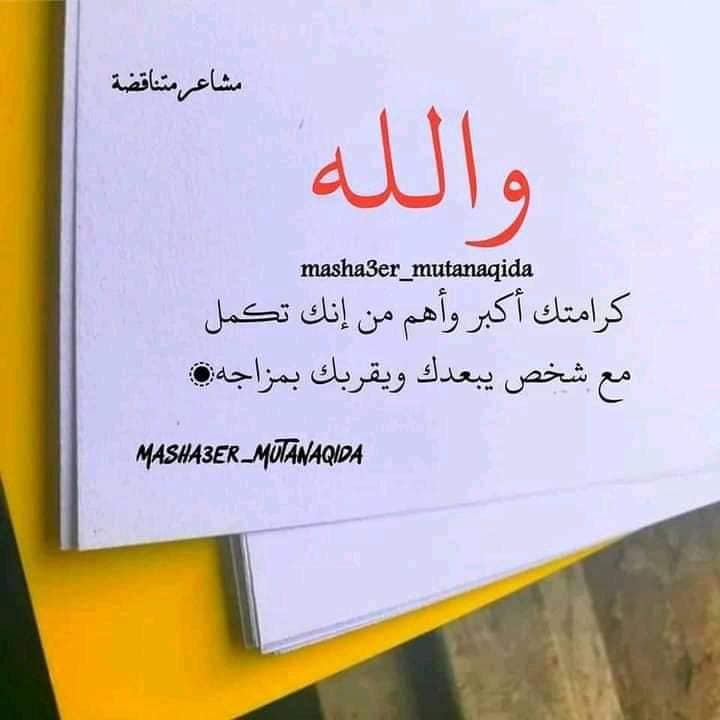 مشاعر متناقضة
والله
masha3er_mutanaqida
كرامتك أكبر وأهم من إنك تكمل
مع شخص يبعدك ويقربك بمزاجه
MASHA3ER_MUTANAQIDA